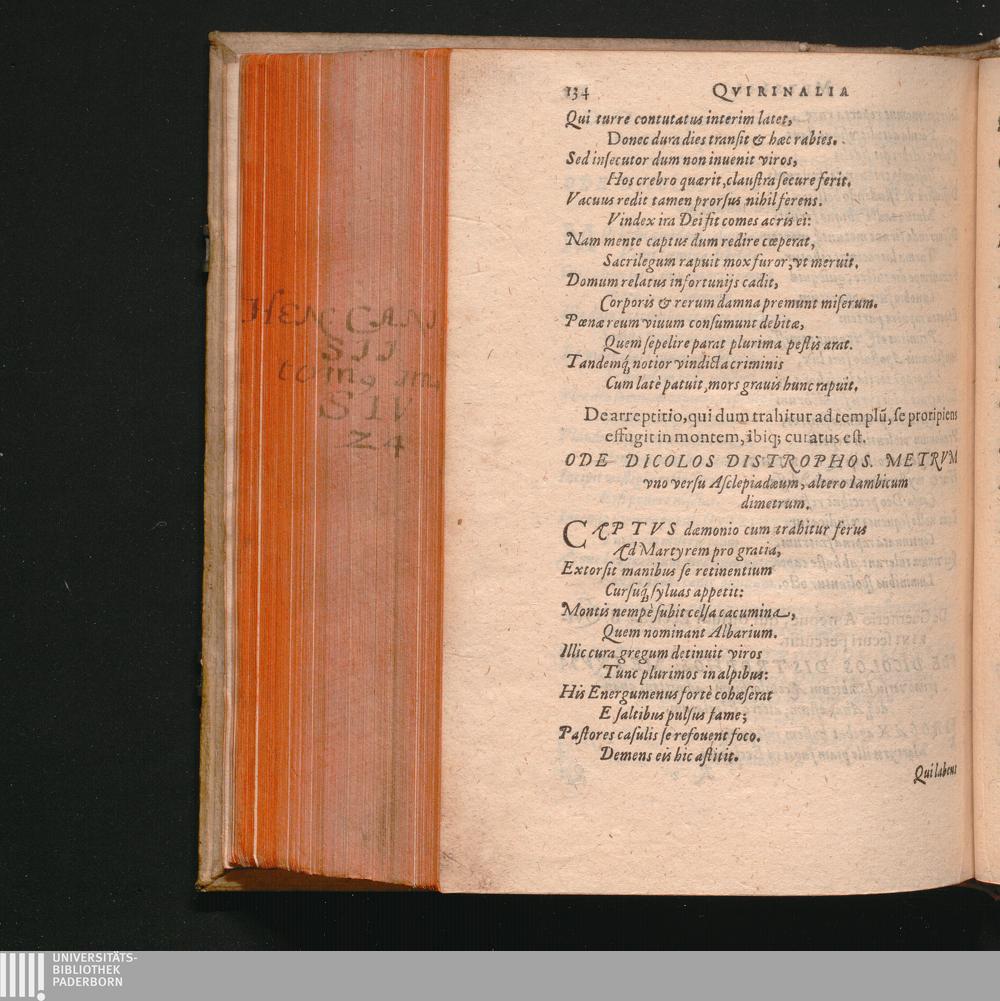 HEN CANI
SII
tom9 im
SIV
Z4
134 QVIRINALIA
Qui turre contutatus interim latet,
Donec dura dies transit & hæc rabies.
Sed insecutor dum non inuenit viros,
Hos crebro quærit, claustra secure ferit.
Vacuus redit tamen prorsus nihil ferens.
Vindex ira Dei fit comes acris ei:
Nam mente captus dum redire cœperat,
Sacrilegum rapuit mox furor, vt meruit.
Domum relatus infortunijs cadit,
Corporis & rerum damna premunt miserum.
Pœnæ reum viuum consumunt debitæ,
Quem sepelire parat plurima pestis arat.
Tandemq́; notior vindicta criminis
Cum latè patuit, mors grauis hunc rapuit.
De arreptitio, qui dum trahitur ad templũ, se proripiens
effugit in montem, ibiq; curatus est.
ODE DICOLOS DISTROPHOS. METRVM
vno versu Asclepiadæum, altero Iambicum
dimetrum.
CÆPTVS dæmonio cum trahitur ferus
Æd Martyrem pro gratia,
Extorsit manibus se retinentium
Cursuq́; syluas appetit:
Montis nempè subit celsa cacumina,
Quem nominant Albarium.
Illic cura gregum detinuit viros
Tunc plurimos in alpibus:
His Energumenus fortè cohæserat
E saltibus pulsus fame;
Pastores casulis se refouent foco.
Demens eis hic astitit.
Qui labens
UNIVERSITÄTS-
BIBLIOTHEK
PADERBORN